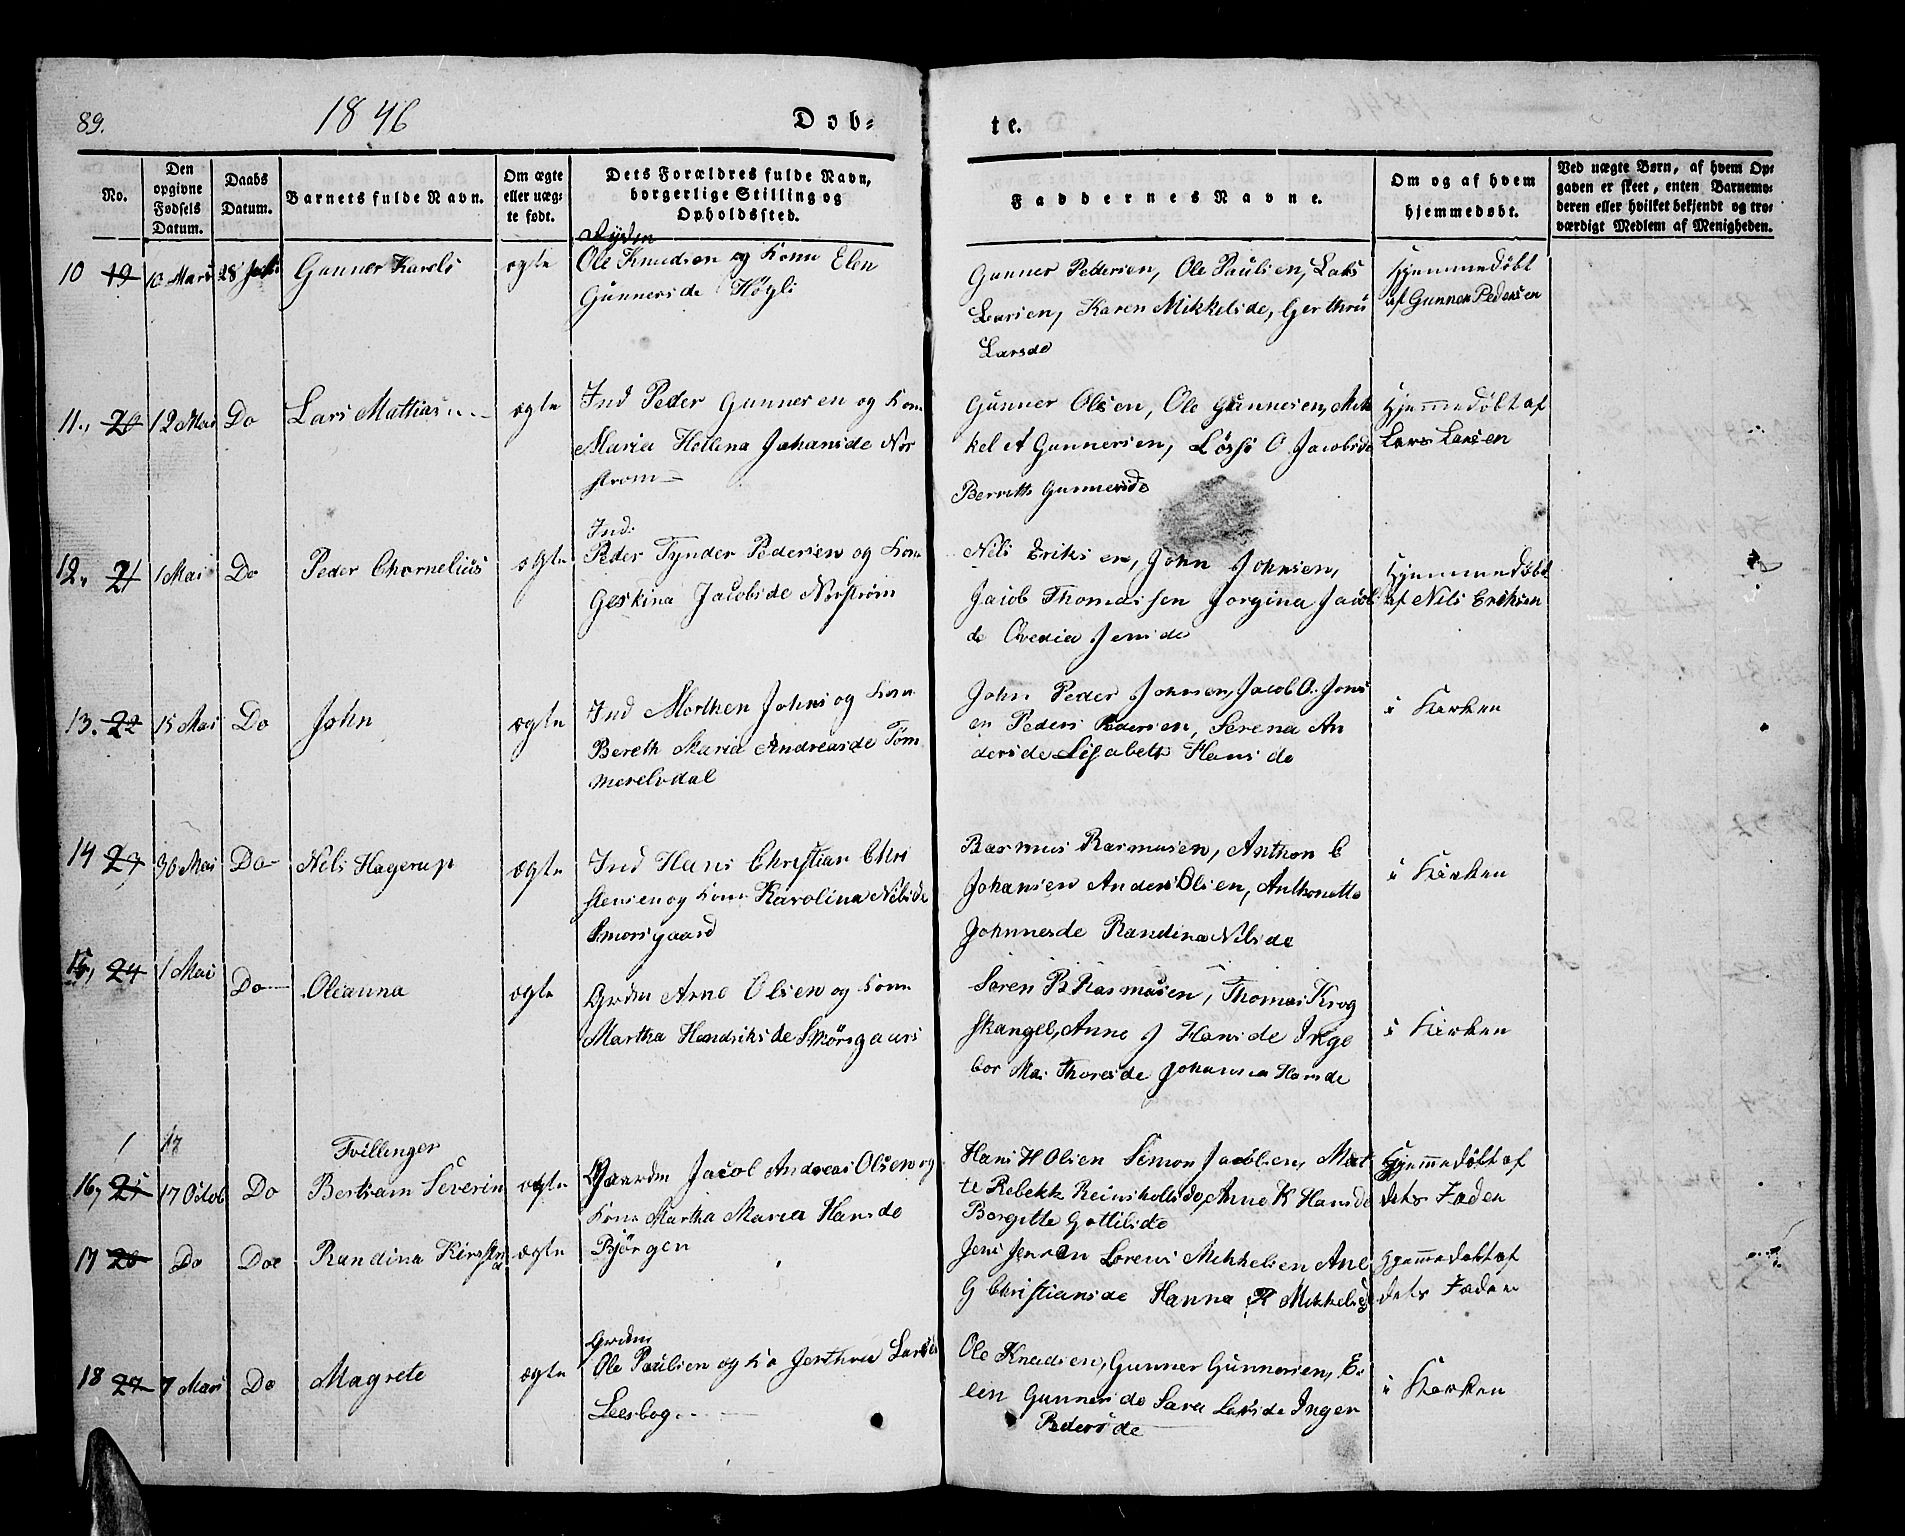 89.
1846
Døb-
te.
No.
Den opgivne Fødsels Datum.
Daabs Datum.
Barnets fulde Navn.
Om ægte eller uægte født.
Dets Forældres fulde Navn, borgerlige Stilling og Opholdssted.
Faddernes Navne.
Om og af hvem hjemmedøbt.
Ved uægte Børn, af hvem Opgaven er skeet, enten Barnemoderen eller hvilket bekjendt og troværdigt Medlem af Menigheden.
10 19 10 Mars 28 Gunner Karels ægte
Ole Knudsen og Kone Elen
Gunnersde Høgli
Gunner Pedersen, Ole Paulsen, Lars
Larsen, Karen Mikkelsde, Gerthru
Larsde
Hjemmedøbt
af Gunner Pedersen
11., 20 12 Mai Do Lars Mattias ægte
Ind Peder Gunnersen og Kone
Maria Hellena Johansde Nor
strøm
Gunner Olsen, Ole Gunnersen, Mik
kel et Gunnersen, O Jacobsde
Bereth Gunnersde
Hjemmedøbt af
Lars Larsen
12., 21 1 Mai Do Peder Chornelius ægte
Ind.
Peder Tynder Pedersen og Kone
Geskina Jacobsde Norstrøm
Nils Eriksen, John Johnsen,
Jacob Thomassen Jorgina Jacobs
de Ovedia Jensde
Hjemmedøbt
af Nils Eriksen
13. 22 15 Mai Do John ægte
Ind Morthen Johns og Kone
Bereth Maria Andreasde Tøm
merelvdal
John Peder Johnsen, Jacob O. Jons
en Peders Pedersen, Serena An
dersde Lisabeth Hansde
i Kirken
14 23 30 Mai Do Nils Hagerup ægte
Ind Hans Christian Chri
stensen og Kone Karolina Nilsde
Smorsgaard
Rasmus Rasmusen, Anthon C
Johansen Anders Olsen, Anthonette
Johnnesde Randina Nilsde
i Kirken
15, 24 1 Mai Do Oleanna ægte
Grdm Arne Olsen og Kone
Martha Hendriksde Smørsgaard
Søren B Rasmusen, Thomas Krog
Skangel, Anne J Hansde Inge
bor Ma: Thoresde Johanna Hansde
i Kirken
1 17
Tvillinger
16, 25 17 Octob Do Bertram Severin ægte
Gaardm Jacob Andreas Olsen og
Kone Martha Maria Hansde
Bjørgen
Hans H Olsen Simon Jacobsen, Mat
te Rebekk Reinholtsde, Anne K Hansde
Borgitte Gottilsde
Hjemmedøbt af
dets Fader
17 26 Do Doe Randina Kirstina ægte
Jens Jensen Lorens Mikkelsen Ane
G Christiansde Hanna P Mikkelsd
Hjemmedøbt af
dets Fader
18 27 7 Mars Do Magrete ægte
Grdm
Ole Paulsen og Ko Jerthru Larsde
Leesbog
Ole Knudsen, Gunner Gunnersen, E
len Gunnersde Sara Larsde Inger
Pedersde
i Kirken